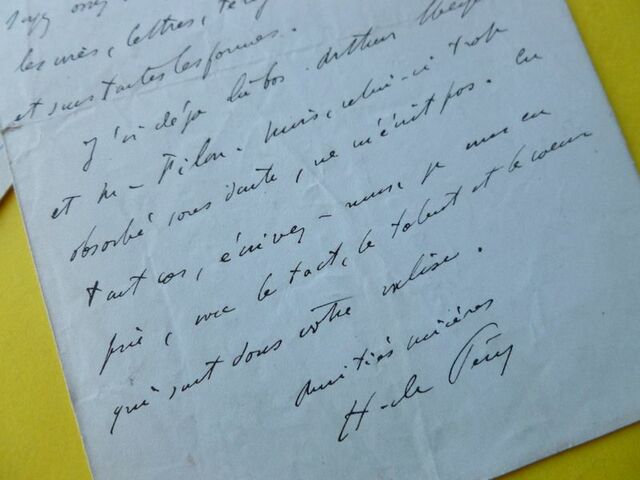 soyez assez
les uns, lettres,
et sous toutes les formes.
J'ai déjà là-bas Arthur Meyer
et M. Filon. Mais, celui-ci trop
absorbé sans doute, ne m'écrit pas. En
tout cas, écrivez-nous, je vous en
prie, avec le tact, le talent et le coeur
qui sont dans votre valise.
Amitiés sincères
H. de Pène